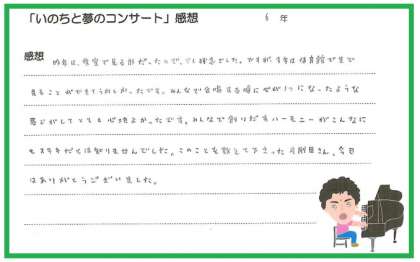 「いのちと夢のコンサート」感想 6 年
感想
昨年は、教室で見る形だったので、少し残念でした。ですが、今年は体育館で生で
見ることができてうれしかったです。みんなで合唱する時に心が1つになったような
感じがしてとても心地よかったです。みんなで創りだすハーモニーがこんなに
もステキだとは知りませんでした。このことを教えて下さった弓削田さん、今日
はありがとうございました。